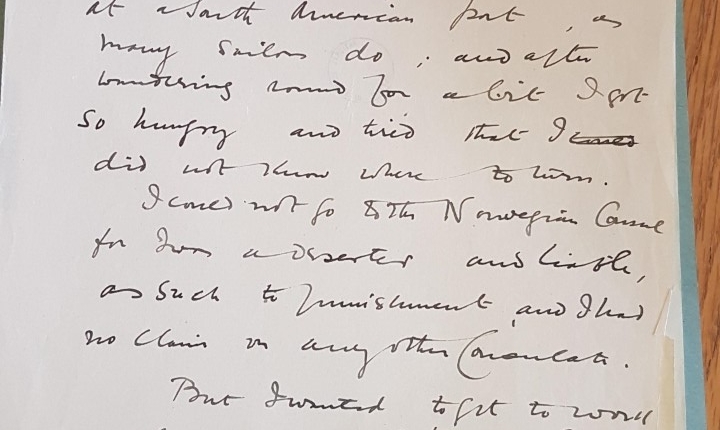 at a South American port, as
many sailors do; and after
wandering round for a bit I got
so hungry and tired that I could
did not know where to turn.
I could not go to the Norwegian Consul
for I was a deserter and liable,
as such to punishment, and I had
no claim on any other Consulate.
But I wanted to get to work